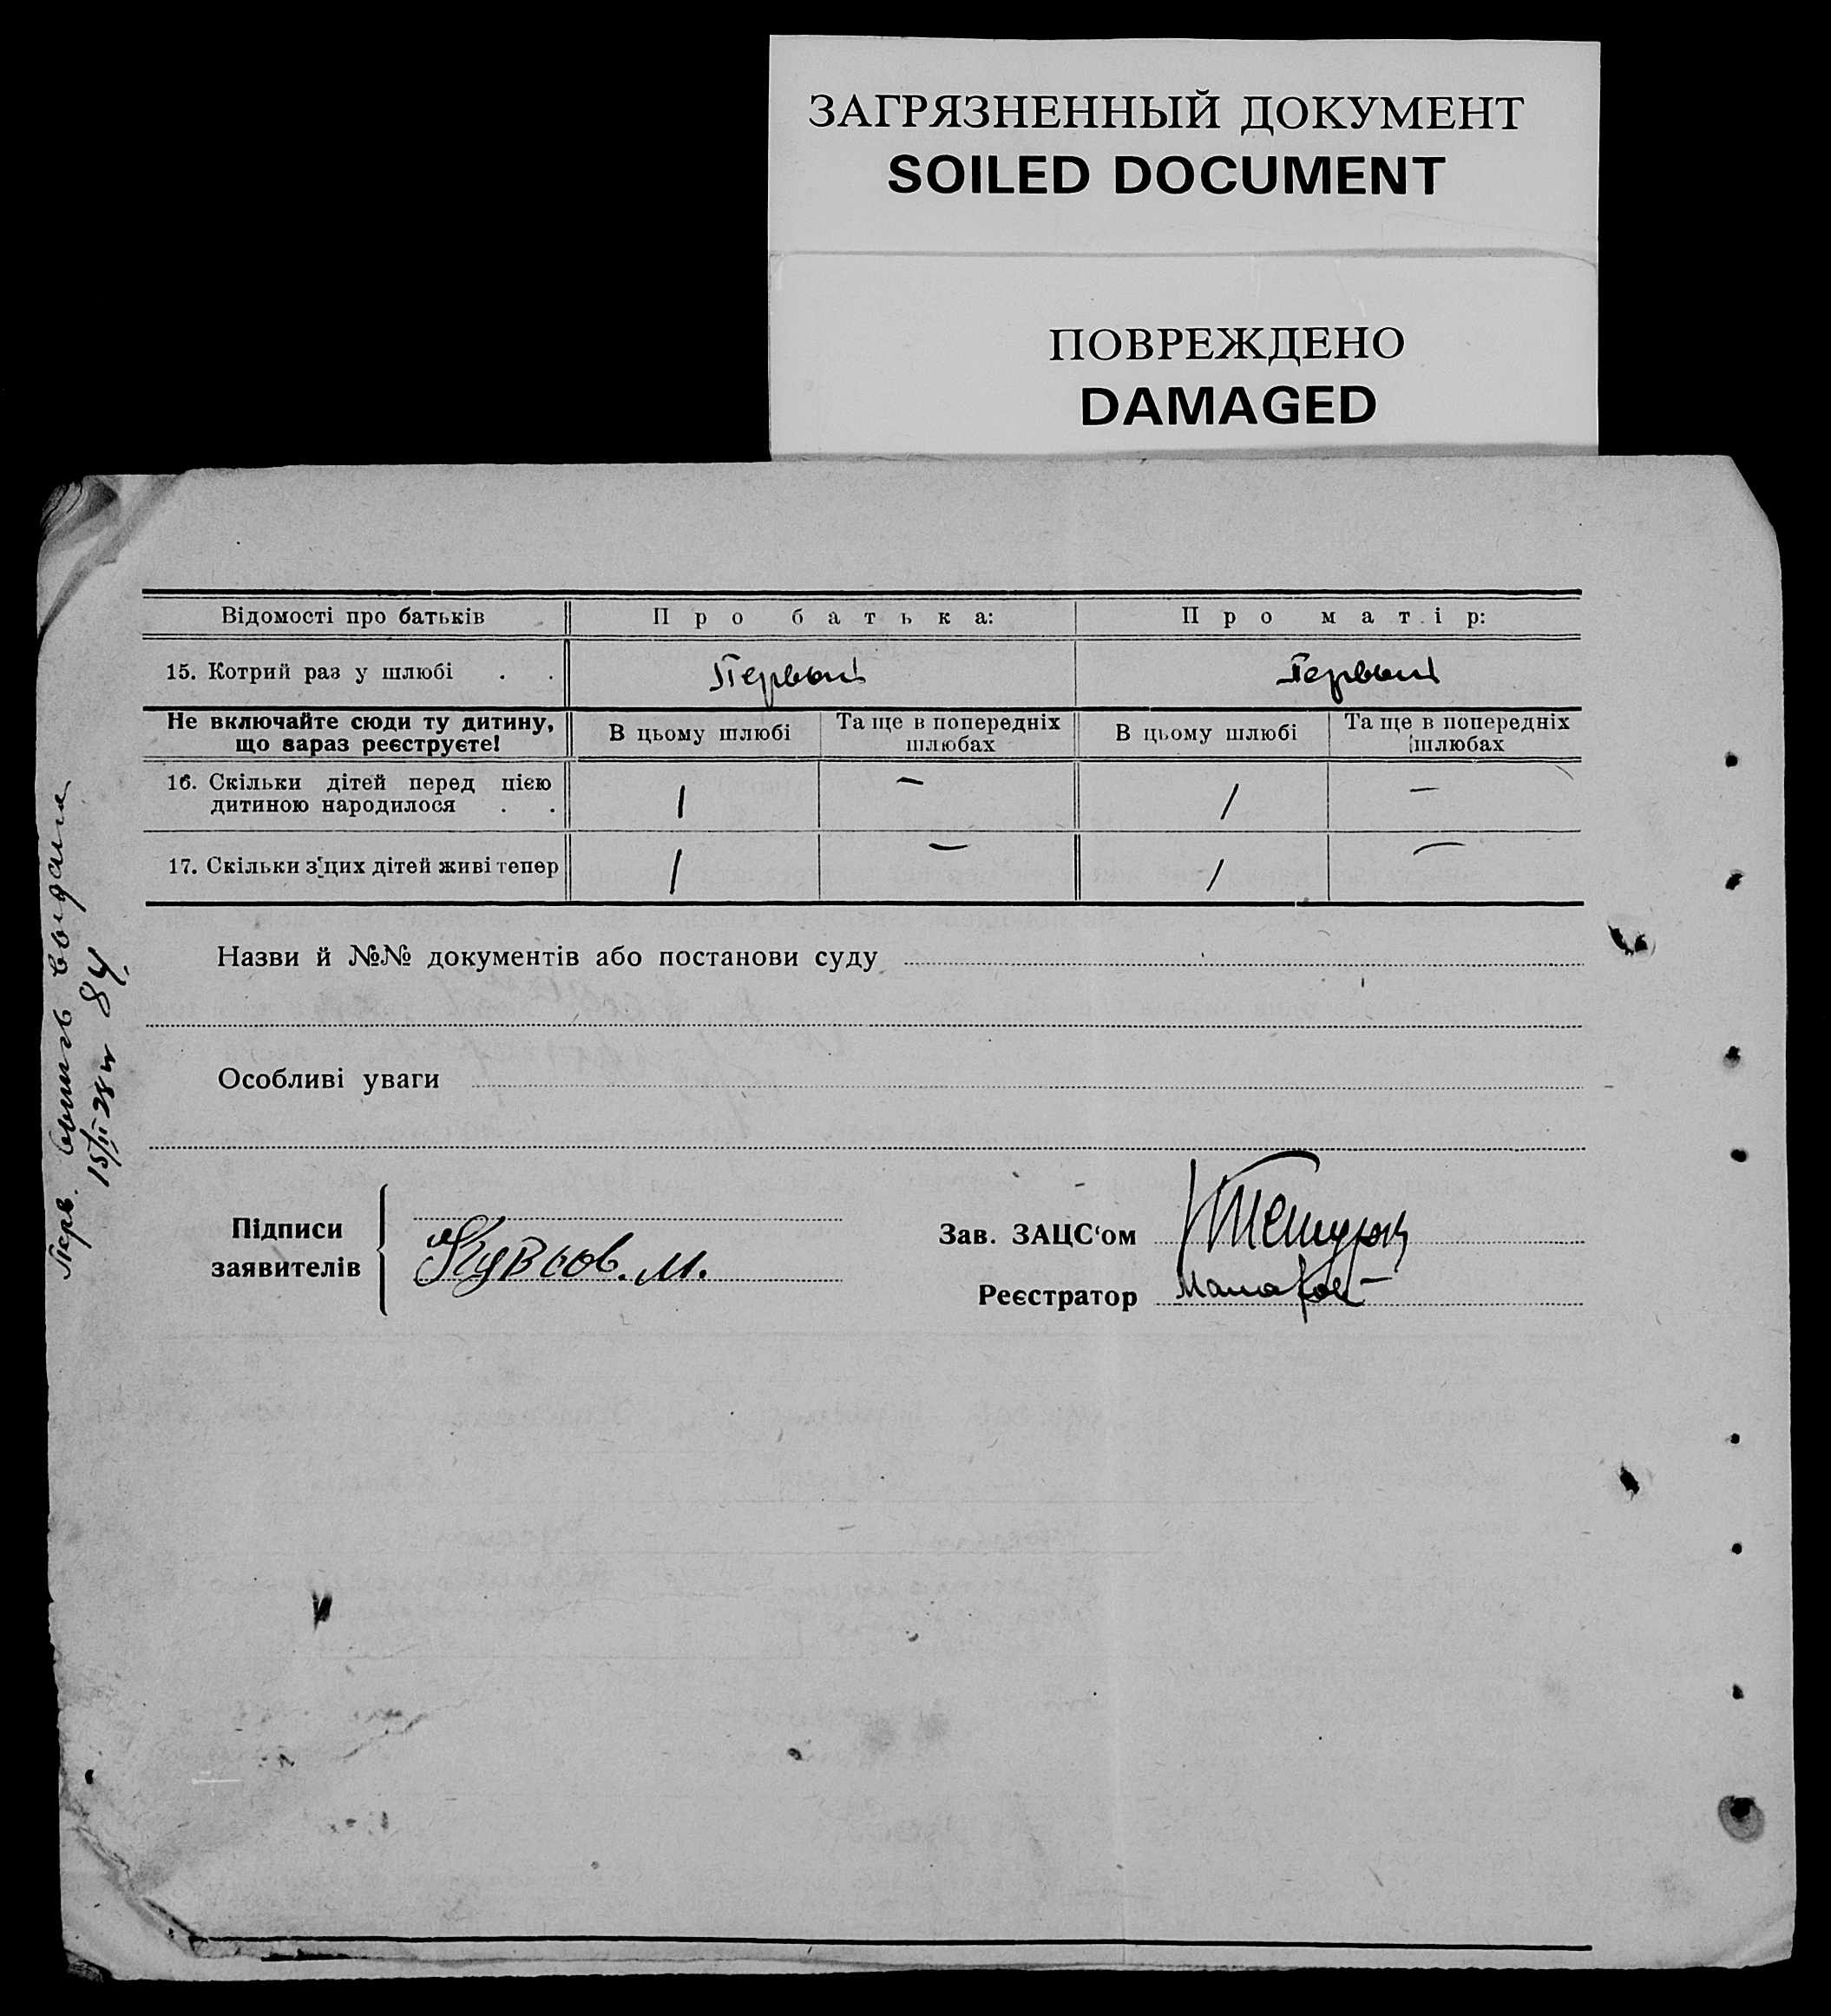 ЗАГРЯЗНЕННЫЙ ДОКУМЕНТ
SOILED DOCUMENT
ПОВРЕЖДЕНО
DAMAGED
Відомості про батьків Про батька: Про матір:
15. Котрий раз у шлюбі . . Первый Первый
Не включайте сюди ту дитину, що зараз реєструєте! В цьому шлюбі Та ще в попередніх шлюбах В цьому шлюбі Та ще в попередніх шлюбах
16. Скільки дітей перед цією
дитиною народилося . . 1 — 1 —
17. Скільки з'цих дітей живі тепер 1 — 1 —
Назви й №№ документів або постанови суду
Особливі уваги
Підписи
заявителів
Зав. ЗАЦС‘ом
Реєстратор
Перв. выпись выдана
15/II-28 84